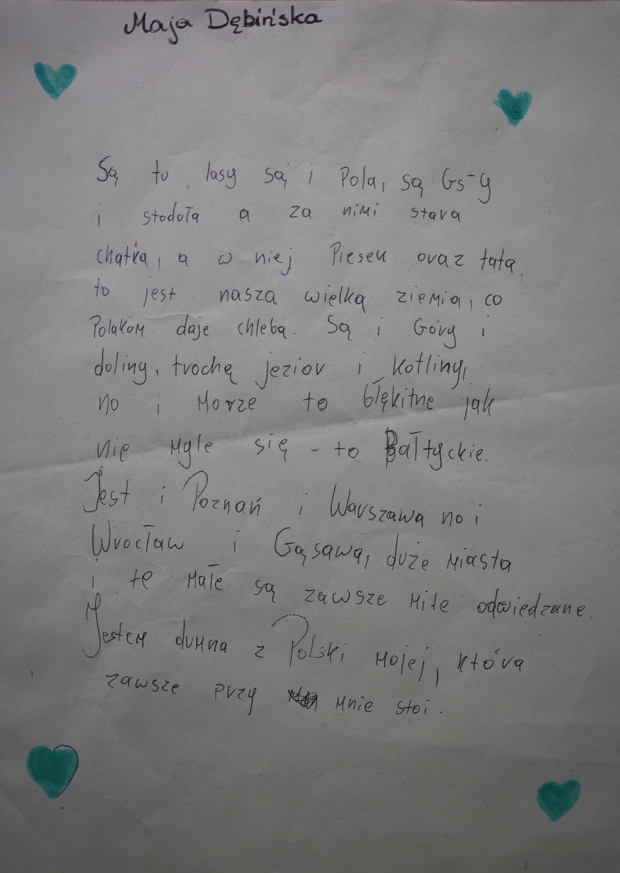 Maja Dębińska
Są tu lasy są i Pola, są Gs-y
i stodoła a za nimi stara
chatka, a w niej Piesek oraz tata,
to jest nasza wielka ziemia, co
Polakom daje chleba. Są i Góry i
doliny, trochą jezior i kotliny,
no i Morze to błękitne jak
nie myle się - to Bałtyckie.
Jest i Poznań i Warszawa no i
Wrocław i Gąsawa, duże miasta
i te małe są zawsze mile odwiedzane.
Jestem dumna z Polski mojej, która
zawsze przy mnie stoi.